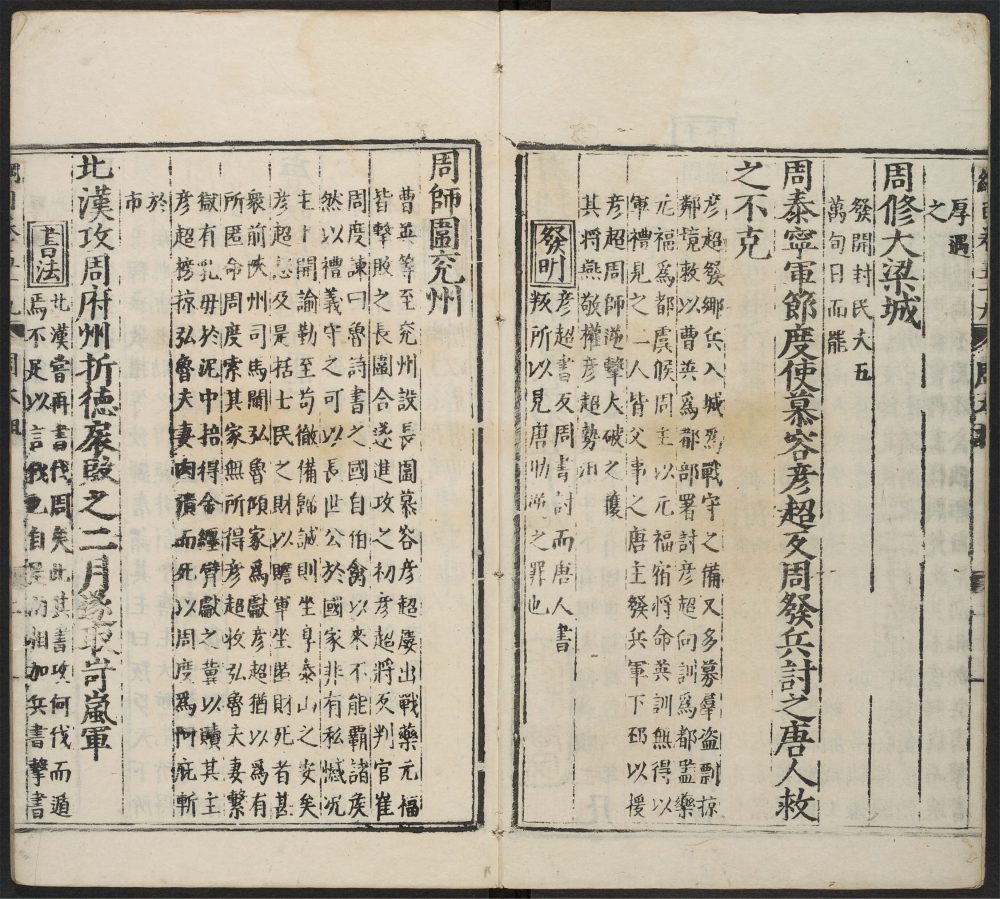 厚遇
之
周修大梁城
發開封民夫五
萬旬日而罷
周泰寧軍節度使慕容彦超反周發兵討之唐人救
之不克
彦超發鄉兵入城爲戰守之備又多募羣盜剽掠
鄰境敕以曹英爲都部署討彦超向訓爲都監藥
元福爲都虞候周主以元福宿將命英訓無得以
軍禮見之二人皆父事之唐主發兵軍下邳以援
彦超周師逆擊大破之獲
其將燕敬權彦超勢沮
發明
彦超書反周書討而唐人書
救所以見唐助逆之罪也
周師圍兖州
曹英等至兖州設長圍慕容彦超屢出戰藥元福
皆擊敗之長圍合遂進攻之初彦超將反判官崔
周度諫曰魯詩書之國自伯禽以來不能霸諸侯
然以禮義守之可以長世公於國家非有私憾况
主上開諭勤至苟徹備歸誠則坐享泰山之安矣
彦超怒及是括士民之財以贍軍坐匿財死者甚
衆前陜州司馬閻弘魯傾家爲獻彦超猶以爲有
所匿命周度索其家無所得彦超收弘魯夫妻繫
獄有乳母於泥中掊得金纏臂獻之冀以贖其主
彦超搒掠弘魯夫妻肉潰而死以周度爲阿庇斬
於
市
北漢攻周府州折德扆敗之二月取岢嵐軍
書法
北漢嘗再書伐周矣此其書攻何伐而遁
焉不足以言伐也自是兩相加兵書擊書